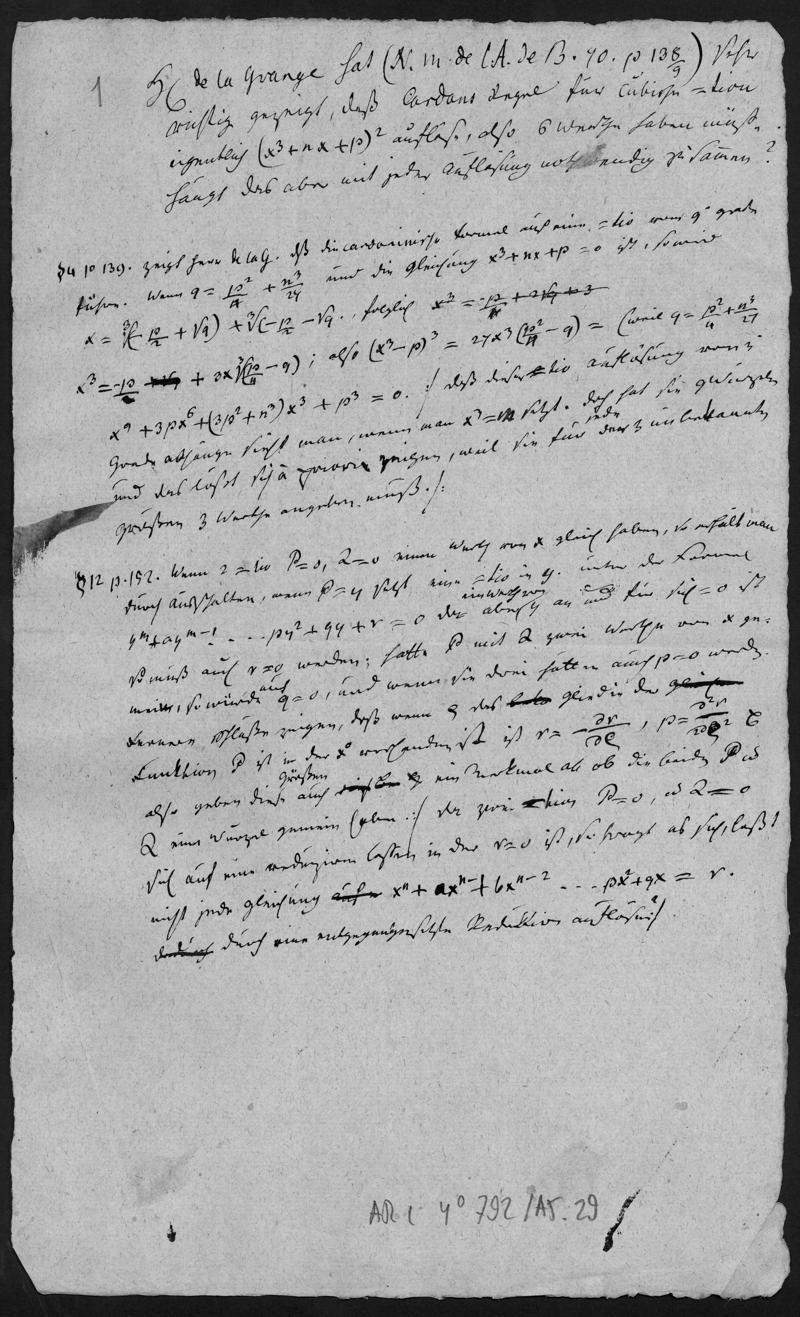 1
H. de la Grange hat (N. M. de l'A. de B. 70. p 138/9) sehr
richtig gezeigt, daß Cardans Regel für Cubische =tion
eigentlich (x³+nx+p)² auflöse, also 6 Werthe haben müsse.
hängt das aber mit jeder Auflösung nothwendig zusammen?
§4 p 139. zeigt Herr de la G. daß die cardanische Formel auf eine =tio vom 9ᵗ grade
führe. Wenn q = p²/4 + n³/27 und die Gleichung x³+nx+p=0 ist, so wird
x = ∛(-p/2 + √q) + ∛(-p/2 - √q. folglich x³ = -p/4 + 2√q + 3
x³ = -p + √q + 3x ∛(p²/4 - q); also (x³-p)³ = 27x³(p²/4 - q) = (weil q = p²/4 + n³/27
x⁹ + 3px⁶ + (3p²+n³)x³ + p³ = 0. :/ daß diese =tio Auflösung vom 3
Grade abhänge sieht man, wenn man x³=m setzt. doch hat sie 9 Wurzeln
und das läßt sich à priori zeigen, weil sie für jede der 3 unbekannten
größen 3 Werthe angeben muß./:
§12 p. 152. Wenn 2 =tio P=0, Q=0 einen Werth von x gleich haben, so erhält man
durch ausschalten, wenn P=y setzt eine =tio in y. unter der Formel
yᵐ + ayᵐ⁻¹ . . . py² + qy + r = 0 da aber y an und für sich =0 ist
ein Werth von
so muß auch r=0 werden; hätte P mit Q zwei Werthe von x ge=
mein, so würde auch q=0, und wenn sie drei hätten auch p=0 werden.
Fernere Schlüße zeigen, daß wenn ξ das glied in der
Funktion P ist in der x⁰ vorhanden ist ist r = -∂r/∂ξ, p = ∂²r/∂ξ² &
also geben diese größen auch ein Merkmal ab ob die beiden P u
Q eine Wurzel gemein haben :/ Da zwei =tion P=0, u Q=0
sich auf eine reduziren lassen in der r=0 ist, so fragt es sich, läßt
nicht jede Gleichung xⁿ + axⁿ⁻¹ + bxⁿ⁻² . . . px² + qx = r.
durch eine entgegengesetzte Reduktion auflösen?/
4° 792 /